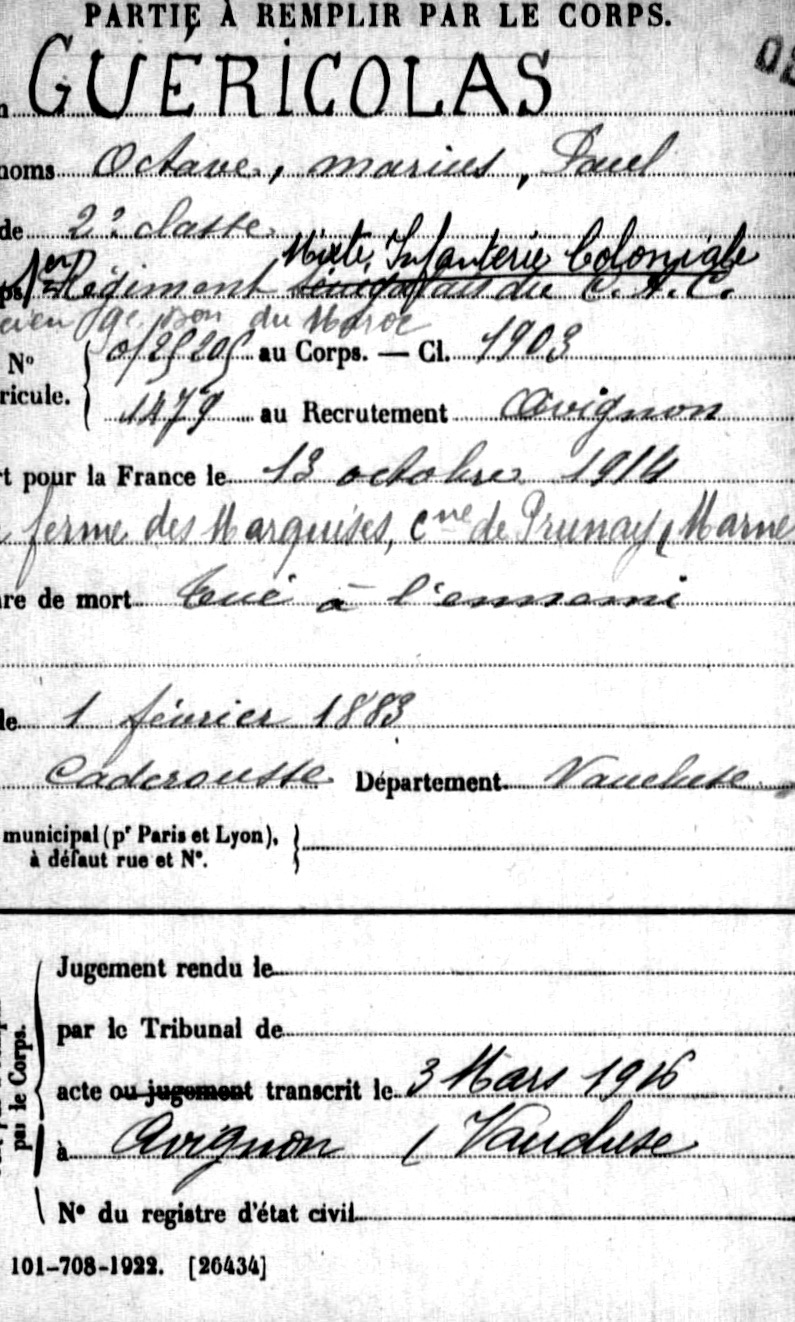 PARTIE À REMPLIR PAR LE CORPS.
GUÉRICOLAS
noms Octave, Marius, Paul
de 2e classe
Mixte Infanterie Coloniale
1er Régiment Sénégalais du C. A. C.
du Maroc
N° 0/25205 au Corps. — Cl. 1903
ricule. 1479 au Recrutement Avignon
t pour la France le 13 octobre 1914
ferme des Marquises, Cne de Prunay (Marne
re de mort Tué à l'ennemi
le 1 février 1883
Caderousse Département Vaucluse
municipal (pr Paris et Lyon),
à défaut rue et N°.
Jugement rendu le
par le Tribunal de
acte ou jugement transcrit le 3 Mars 1916
par le Corps.
à Avignon (Vaucluse
N° du registre d'état civil
101-708-1922. [26434]